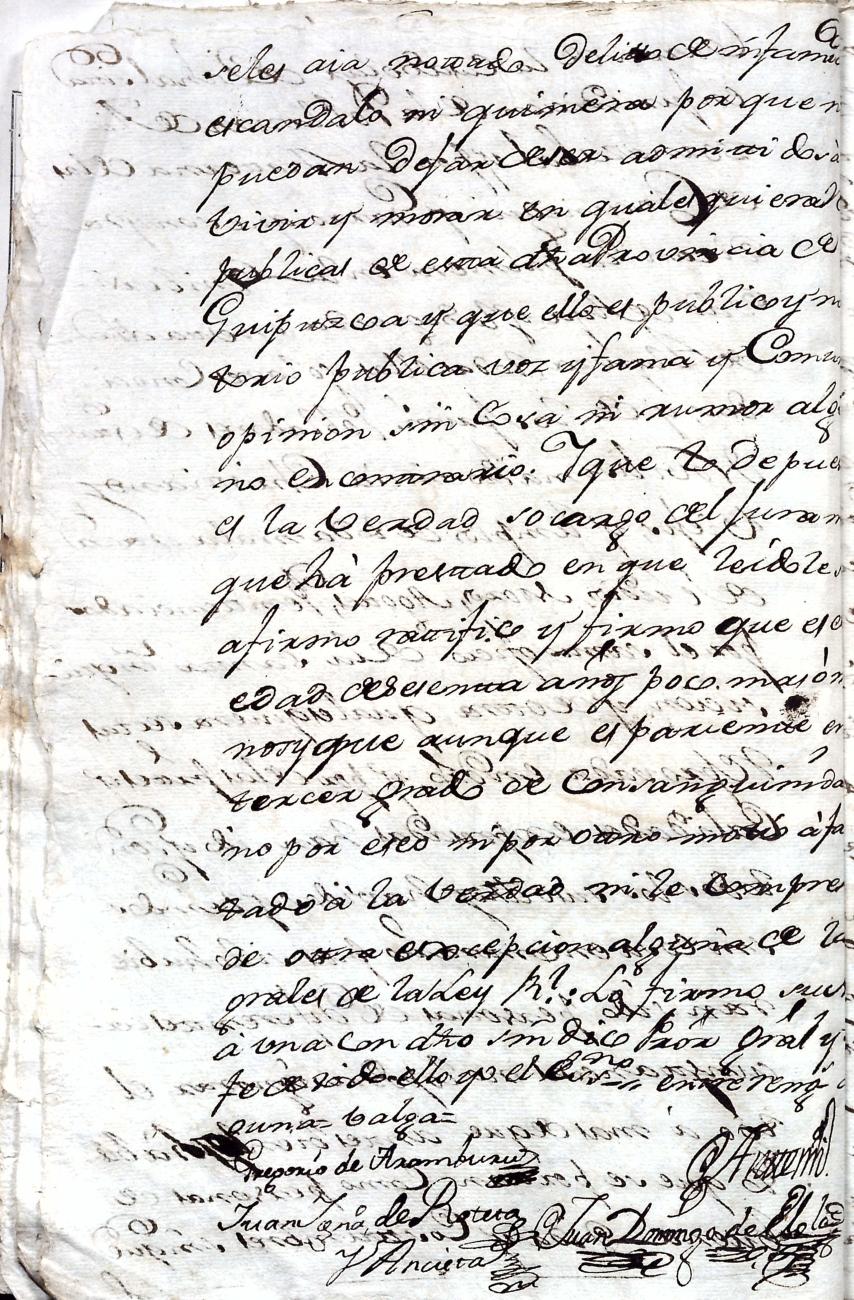 6
seles aia notado Delito de infamia
escandalo ni quimera por que n
puedan Dejar de ser admitidos a
vivir y morar en quales quiera
publicas de esta dha Provincia de
Guipuzcoa y que ello es publico y n
torio publica voz y fama y Comu
opinion sin Cosa ni rumor alg
no en contrario. Y que lo depue
es la Verdad so cargo del Juram
que hà prestado en que leidole s
afirmo ratifico y firmo que es d
edad de sesenta años poco mas ó m
nos y que aunque es pariente en
tercer grado de Consanguinida
no por eso ni por otro motivo à fa
tado á la Verdad ni le Compre
de otra excepcion alguna de la
grales de la Ley Rl. Lo firmo su
à una con dho sindico Prór gral y
fe de todo ello yo el Essno entrereng
guna= Valga=
Gregorio de Aramburu
Juan de Roteta
y Ancieta
Juan Domingo de